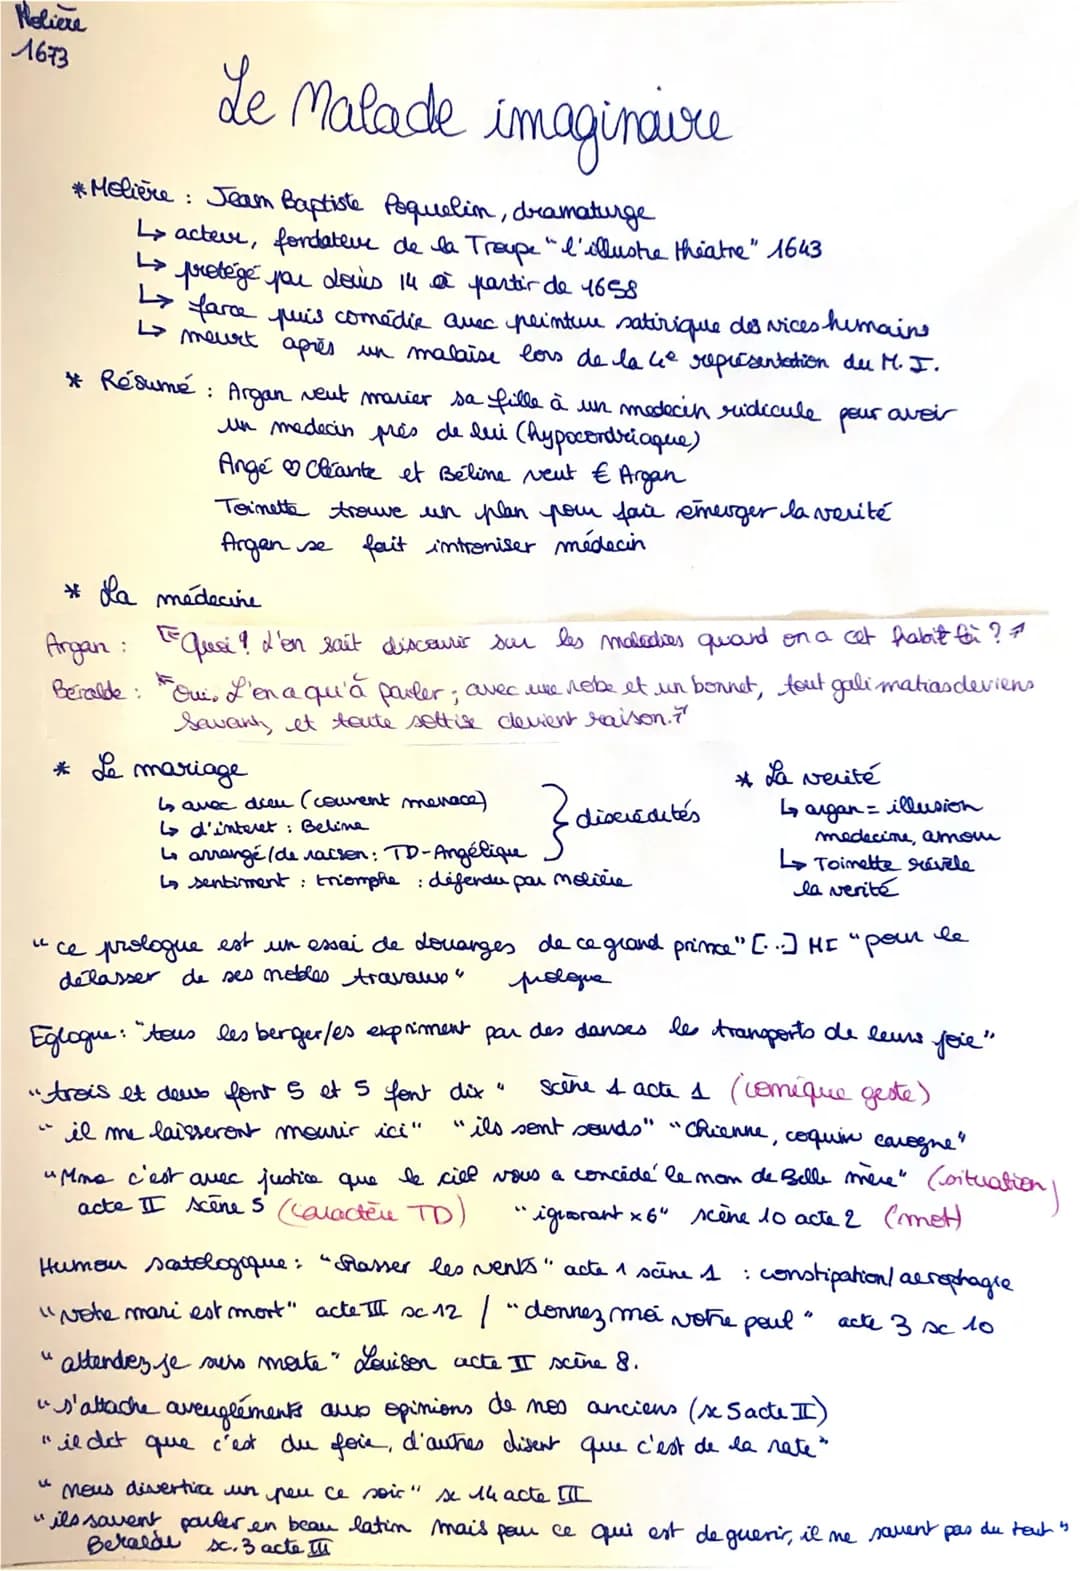 Molière
1673
Le Malade imaginaire
* Molière : Jean Baptiste Poquelin, dramaturge
↳ acteur, fondateur de la Troupe "l'illustre théatre" 1643
↳ protégé par Louis 14 à partir de 1658
↳ farce puis comédie avec peinture satirique des vices humains
↳ meurt après un malaise lors de la 4e représentation du M. I.
* Résumé : Argan veut marier sa fille à un medecin ridicule pour avoir
un medecin près de lui (hypocondriaque)
Angé ♡ Cléante et Béline veut € Argan
Toinette trouve un plan pour faire émerger la verité
Argan se fait introniser médecin
* La médecine
Argan : "Quoi ? L'on sait discourir sur les maladies quand on a cet habit là ? "
Béralde : "Oui, L'on a qu'à parler ; avec une robe et un bonnet, tout galimatias deviens
savant, et toute sottise devient raison."
* Le mariage
↳ avec dieu (couvent menace)
↳ d'interet : Beline
↳ arrangé/de raison : TD-Angélique
} discrédités
↳ sentiment : triomphe : défendu par molière
* La verité
↳ argan = illusion
medecine, amour
↳ Toinette révèle
la verité
"ce prologue est un essai de louanges de ce grand prince" [...] MI "pour le
délasser de ses nobles travaux" prologue
Eglogue : "tous les berger/es expriment par des danses les transports de leurs joie"
"trois et deux font 5 et 5 font dix" scène 1 acte 1 (comique geste)
"il me laisseront mourir ici" "ils sont sourds" "Chienne, coquine carogne"
"Mme c'est avec justice que le ciel vous a concédé le nom de Belle mère" (situation)
acte II scène 5 (caractère TD) "ignorant x6" scène 10 acte 2 (mot)
Humour scatologique : "chasser les vents" acte 1 scène 1 : constipation/aerophagie
"votre mari est mort" acte III sc 12 / "donnez moi votre poul" acte 3 sc 10
"attendez je suis morte" Louison acte II scène 8.
"s'attache aveugléments aux opinions de nos anciens (sc 5 acte II)
"il dit que c'est du foie, d'autres disent que c'est de la rate"
"nous divertir un peu ce soir" sc 14 acte III
"ils savent parler en beau latin mais pour ce qui est de guerir, il ne savent pas du tout"
Beralde sc. 3 acte III